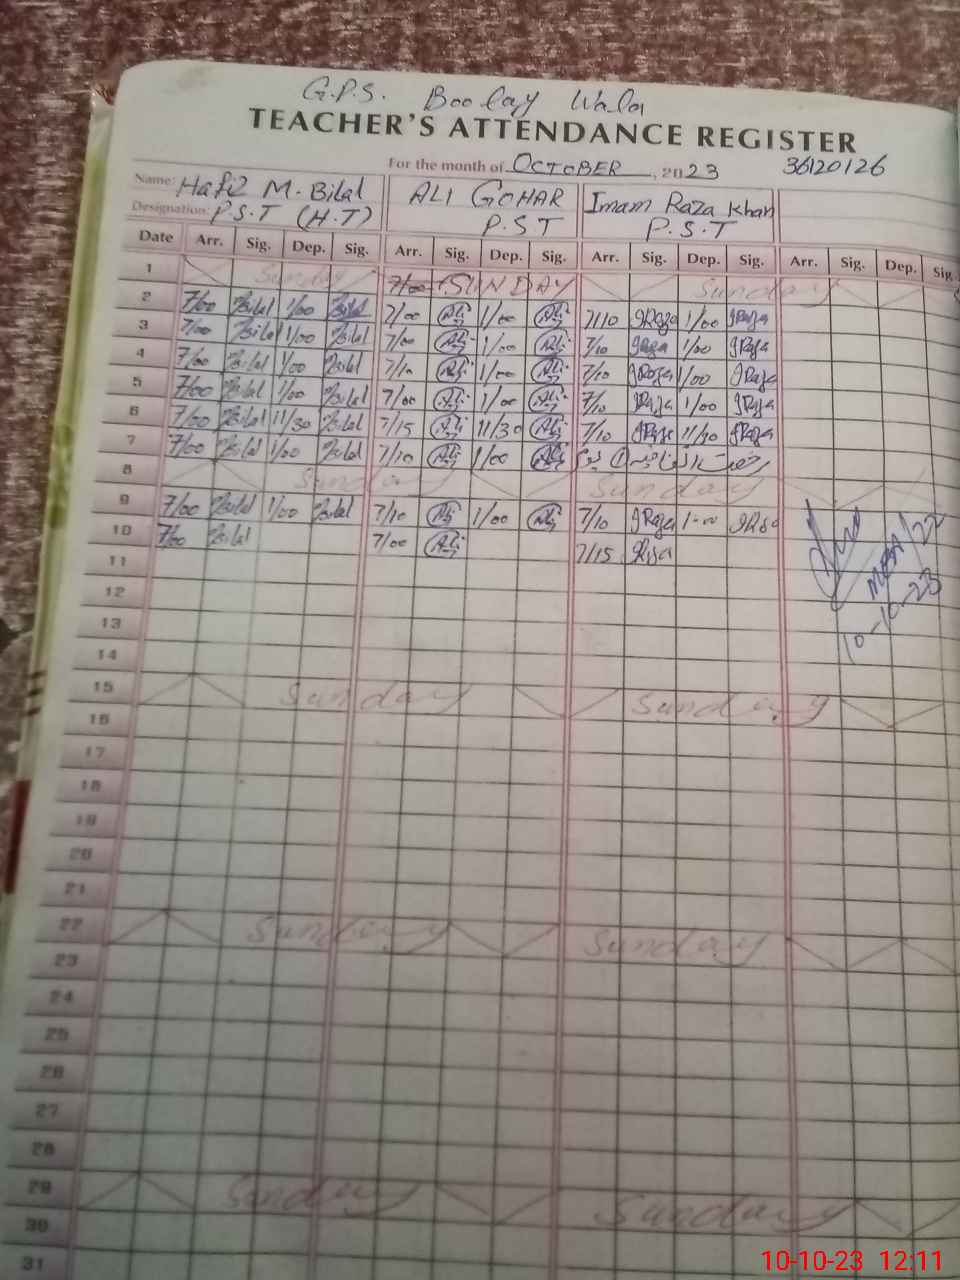 G.P.S. Boolay Wala
TEACHER'S ATTENDANCE REGISTER
For the month of OCTOBER, 2023 36120126
Name: Hafiz M. Bilal ALI GOHAR Imam Raza Khan
Designation: P.S.T (H.T) P.S.T P.S.T
Date Arr. Sig. Dep. Sig. Arr. Sig. Dep. Sig. Arr. Sig. Dep. Sig. Arr. Sig. Dep. Sig.
1 Sunday 7/00 SUNDAY Sunday
2 7/00 Bilal 1/00 Bilal 7/00 Ali 1/00 Ali 7/10 IRaza 1/00 IRaza
3 7/00 Bilal 1/00 Bilal 7/00 Ali 1/00 Ali 7/10 IRaza 1/00 IRaza
4 7/00 Bilal 1/00 Bilal 7/10 Ali 1/00 Ali 7/10 IRaza 1/00 IRaza
5 7/00 Bilal 1/00 Bilal 7/00 Ali 1/00 Ali 7/10 IRaza 1/00 IRaza
6 7/00 Bilal 11/30 Bilal 7/15 Ali 11/30 Ali 7/10 IRaza 11/30 IRaza
7 7/00 Bilal 1/00 Bilal 7/10 Ali 1/00 Ali
8 Sunday Sunday
9 7/00 Bilal 1/00 Bilal 7/10 Ali 1/00 Ali 7/10 IRaza 1-00 IRaza
10 7/00 Bilal 7/00 Ali 7/15 IRaza
11
10-10-23
12
13
14
15 Sunday Sunday
16
17
18
19
20
21
22 Sunday Sunday
23
24
25
26
27
28
29 Sunday Sunday
30
31
10-10-23 12:11